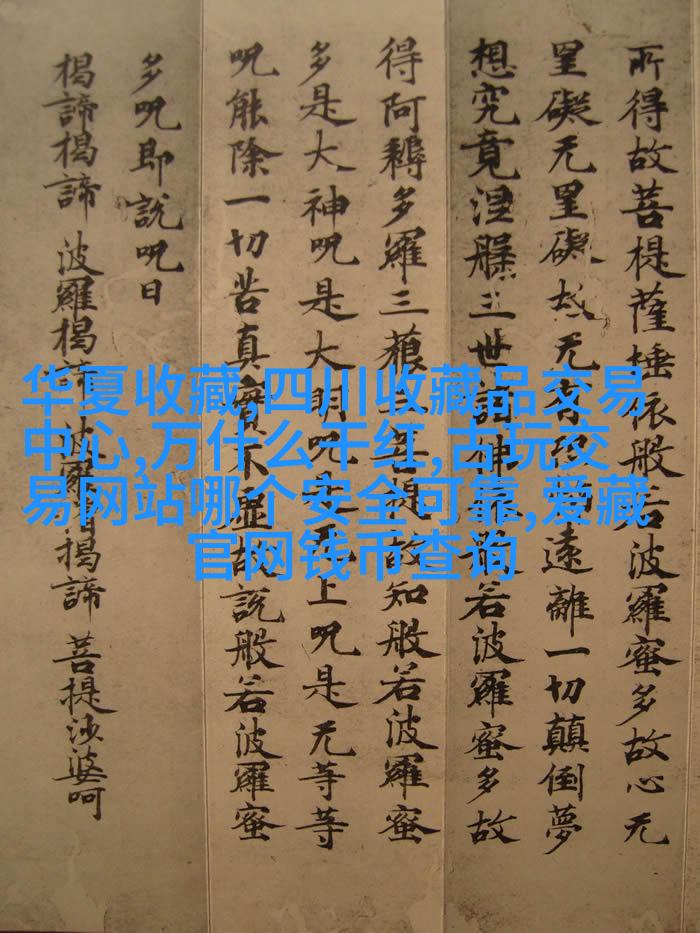 所得故菩提薩埵依般若波羅蜜多故心无
罣礙无罣礙故无有恐怖遠離一切顛倒夢
想究竟涅槃三世諸佛依般若波羅蜜多故
得阿耨多羅三藐三菩提故知般若波羅蜜
多是大神呪是大明呪是无上呪是无等等
呪能除一切苦真實不虛故說般若波羅蜜
多呪即說呪曰
揭諦揭諦 波羅揭諦 波羅僧揭諦 菩提沙婆呵
华夏收藏,四川收藏品交易
中心,万什么千红,古玩交
易网站哪个安全可靠,爱藏
官网钱币查询